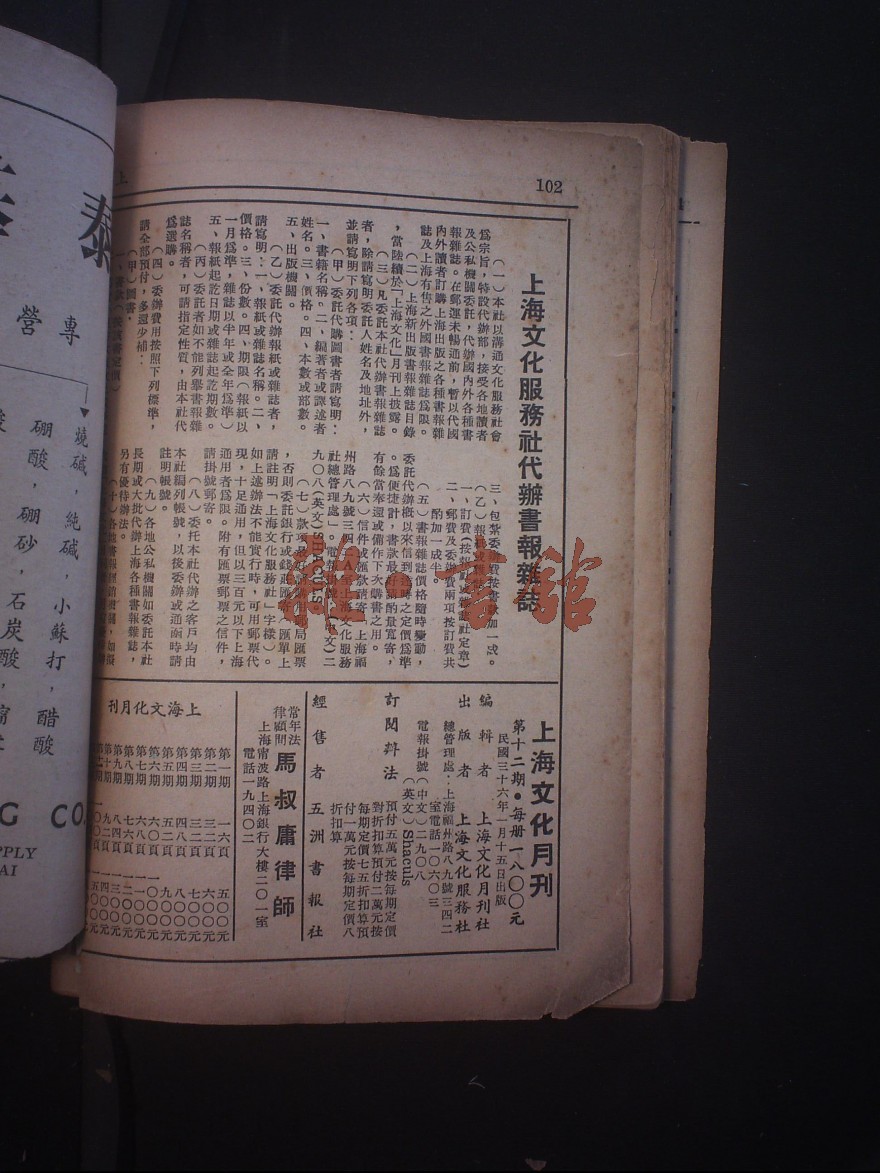 102
上海文化服務社代辦書報雜誌
(一)本社以溝通文化服務社會
為宗旨,特設代辦部,接受各地讀者
及公私機關委託,代辦國內外各種書
報雜誌。在郵運未暢通前,暫以代國
內外讀者訂購上海出版之各種書報雜
誌及上海有售之外國書報雜誌為限。
(二)上海新出版書報雜誌目錄
,當陸續於「上海文化」月刊上披露。
(三)凡委託本社代辦書報雜誌
者,除請寫明委託人姓名及地址外,
並請寫明下列各項:
(甲)委託代購圖書者請寫明:
一、書籍名稱。二、編著者或譯述者
姓名。三、價格。四、本數或部數。
五、出版機關。
(乙)委託代辦報紙或雜誌者,
請寫明:一、報紙或雜誌名稱。二、
價格。三、份數。四、期限(報紙以
一月為準,雜誌以半年或全年為準)
五、報紙起訖日期或雜誌起訖期數。
(丙)委託者如不能列舉書報雜
誌名稱者,可請指定性質,由本社代
為選購。
(四)委辦費用按照下列標準,
請全部預付,多還少補:
(甲)圖書:
三、包紮委辦費按書款加一成。
(乙)報紙或雜誌:
二、郵費及委辦費兩項按訂費共
酌加一成半
(五)書報雜誌價格隨時變動,
委託代辦概以來信到達時之定價為準
。為便捷計,書款最好請酌量寬寄,
有餘當奉還或備作下次購書之用。
(六)信件或匯款請寄「上海福
州路八九號三四A室上海文化服務
社總管理處」。電報掛號(中文)二
九〇八(英文)SHACULS
(七)款項最好請購用郵局匯票
,否則委託銀行或錢莊匯寄(匯單上
請註明「上海文化服務社」字樣)。
如上述辦法不能實行時,可用郵票代
現,十足通用,但以三百元以下上海
通用者為限。附有匯票郵票之信件,
請掛號郵寄。
(八)委託本社代辦之客戶均由
本社編列帳號,以後委辦或通函時請
註明帳號。
(九)各地公私機關如委託本社
長期或大批代辦上海各種書報雜誌,
另有優待辦法。
上海文化月刊
第十二期•每冊一八〇〇元
民國三十六年一月十五日出版
編輯者 上海文化月刊社
出版者 上海文化服務社
總管理處:上海福州路八九號三四二
室電話一〇六〇三
電報掛號(中文)二九〇八
(英文)Shaculs
訂閱辦法
預付五萬元按每期定價
對折扣算預付二萬元按
每期定價七五折扣算預
付一萬元按每期定價八
折扣算
經售者 五洲書報社
常年法
律顧問 馬叔庸律師
上海甯波路上海銀行大樓二〇一室
電話一九四〇二
上海文化月刊
第一期
第二期
第三期
第四期
第五期
第六期
第七期
第八期
第九期
雜•書館
泰
專
營
燒碱,純碱,小蘇打,醋酸
硼酸,硼砂,石炭酸,
G CO.
PPLY
AI